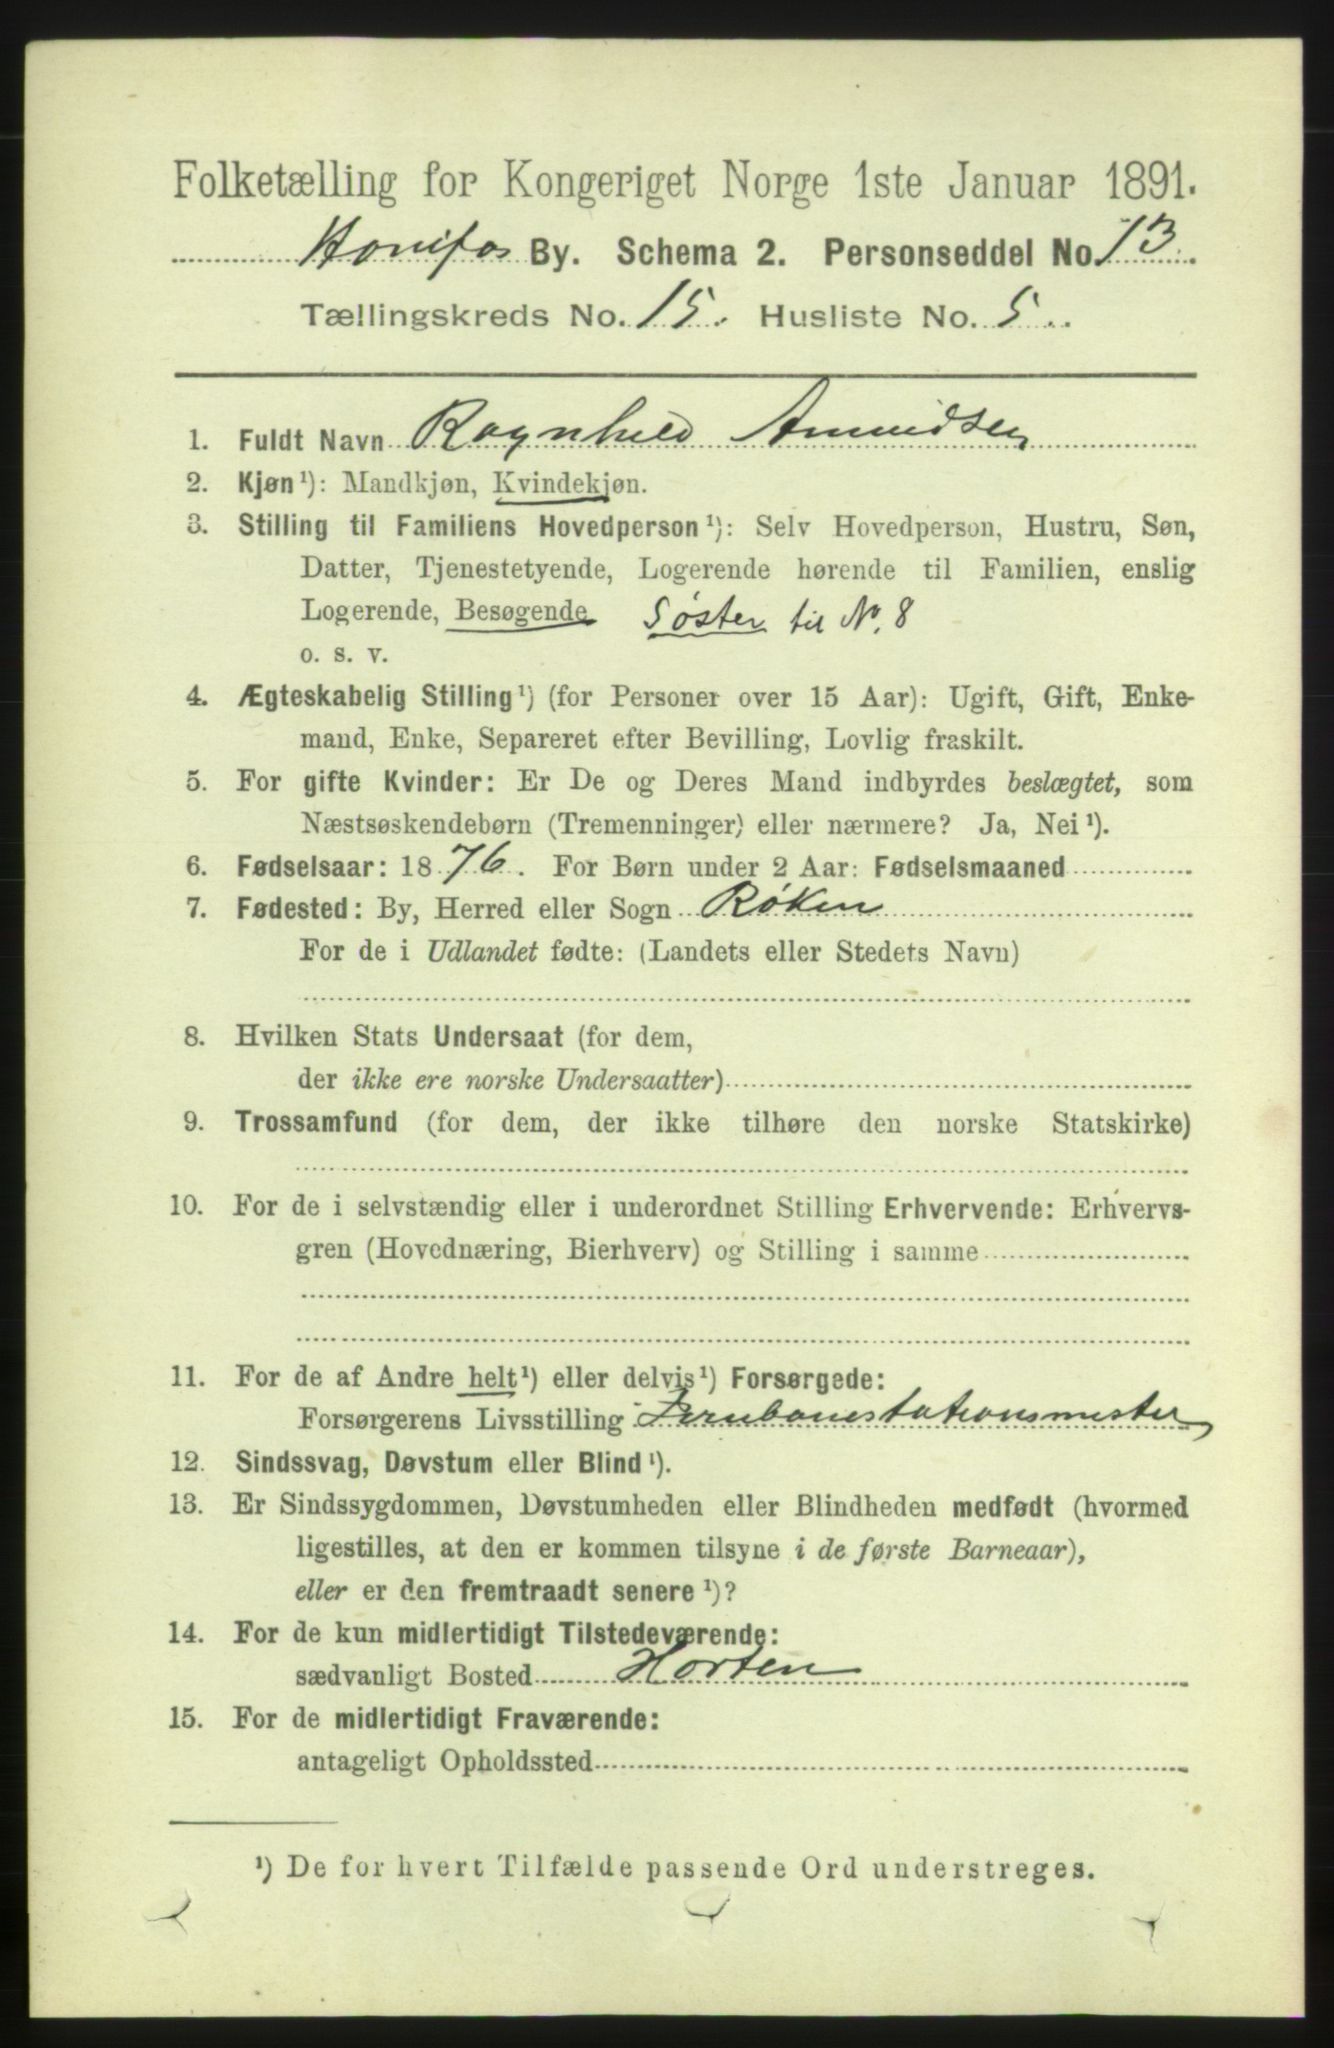 Folketælling for Kongeriget Norge 1ste Januar 1891.
Hønefos By. Schema 2. Personseddel No. 13.
Tællingskreds No. 15. Husliste No. 5.
1. Fuldt Navn Ragnhild Amundsen
2. Kjøn¹): Mandkjøn, Kvindekjøn.
3. Stilling til Familiens Hovedperson¹): Selv Hovedperson, Hustru, Søn,
Datter, Tjenestetyende, Logerende hørende til Familien, enslig
Logerende, Besøgende Søster til No. 8
o. s. v.
4. Ægteskabelig Stilling¹) (for Personer over 15 Aar): Ugift, Gift, Enke-
mand, Enke, Separeret efter Bevilling, Lovlig fraskilt.
5. For gifte Kvinder: Er De og Deres Mand indbyrdes beslægtet, som
Næstsøskendebørn (Tremenninger) eller nærmere? Ja, Nei¹).
6. Fødselsaar: 1876. For Børn under 2 Aar: Fødselsmaaned
7. Fødested: By, Herred eller Sogn Røken
For de i Udlandet fødte: (Landets eller Stedets Navn)
8. Hvilken Stats Undersaat (for dem,
der ikke ere norske Undersaatter)
9. Trossamfund (for dem, der ikke tilhøre den norske Statskirke)
10. For de i selvstændig eller i underordnet Stilling Erhvervende: Erhvervs-
gren (Hovednæring, Bierhverv) og Stilling i samme
11. For de af Andre helt¹) eller delvis¹) Forsørgede:
Forsørgerens Livsstilling Jernbanestationsmester
12. Sindssvag, Døvstum eller Blind¹).
13. Er Sindssygdommen, Døvstumheden eller Blindheden medfødt (hvormed
ligestilles, at den er kommen tilsyne i de første Barneaar),
eller er den fremtraadt senere¹)?
14. For de kun midlertidigt Tilstedeværende:
sædvanligt Bosted Horten
15. For de midlertidigt Fraværende:
antageligt Opholdssted
¹) De for hvert Tilfælde passende Ord understreges.